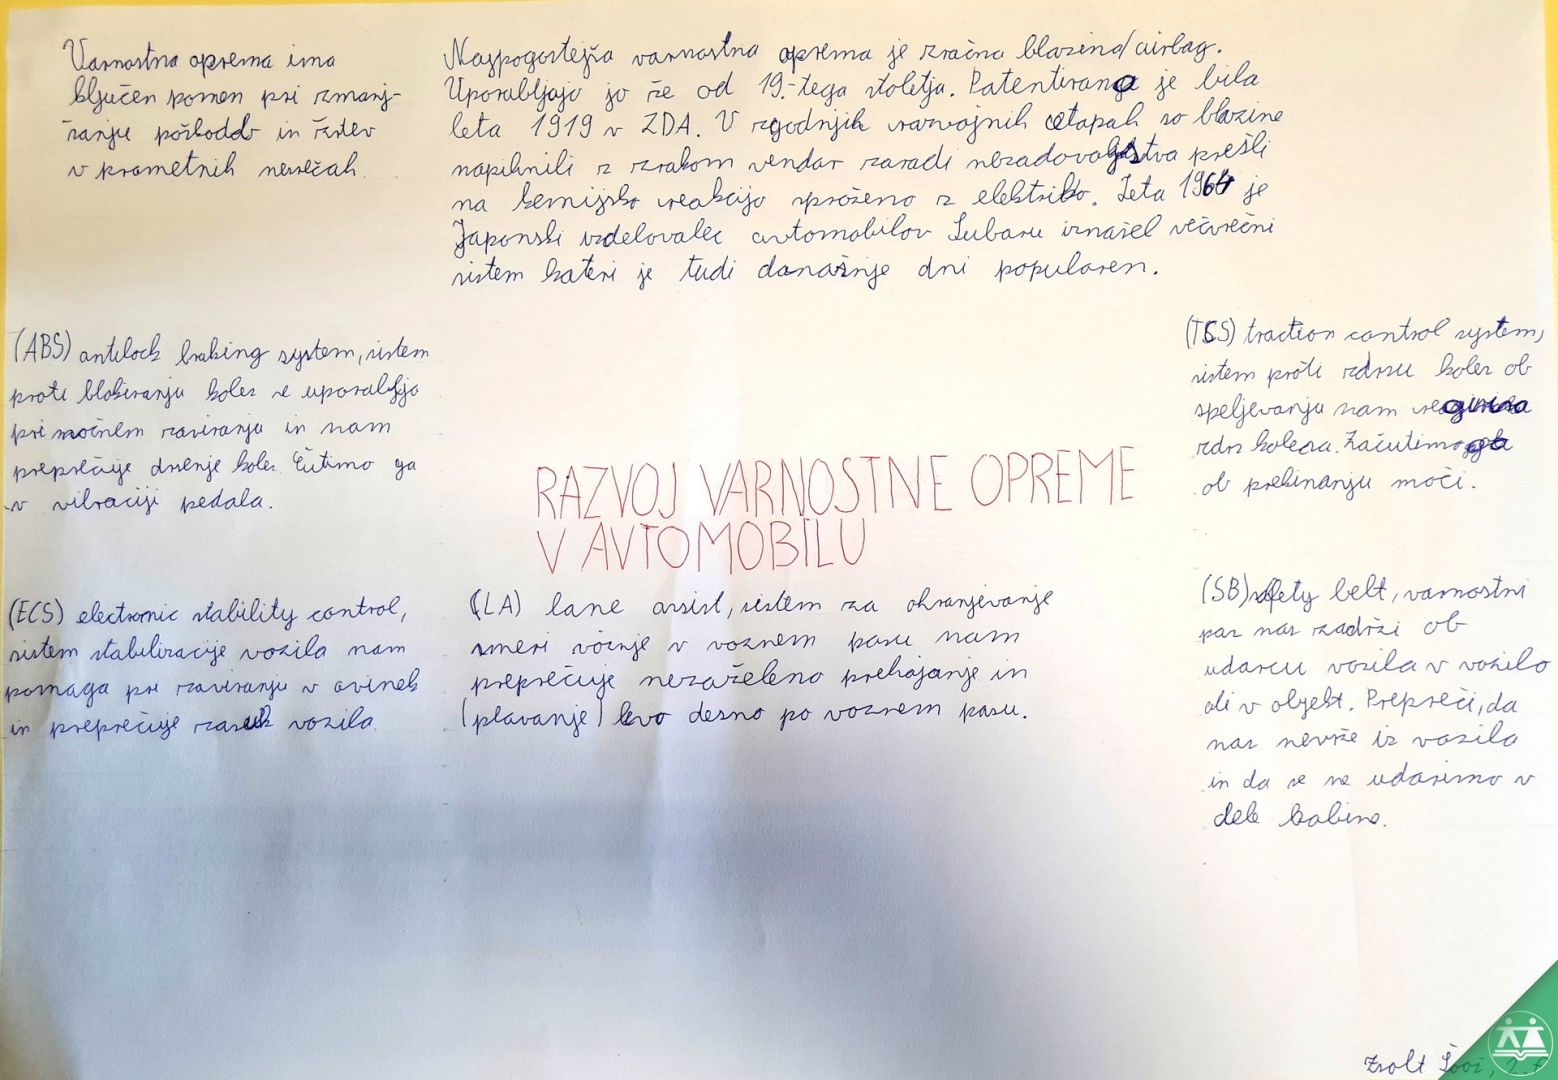 Varnostna oprema ima
ključen pomen pri zmanj-
šanju poškodb in žrtev
v prometnih nesrečah.
Najpogostejša varnostna oprema je zračna blazina/airbag.
Uporabljajo jo že od 19.-tega stoletja. Patentirana je bila
leta 1919 v ZDA. V zgodnjih razvojnih etapah so blazine
napihnili z zrakom vendar zaradi nezadovoljstva prešli
na kemijsko reakcijo sproženo z elektriko. Leta 1964 je
Japonski izdelovalec avtomobilov Subaru iznašel večvrečni
sistem kateri je tudi današnje dni popularen.
(ABS) antilock braking system, sistem
proti blokiranju koles se uporablja
pri močnem zaviranju in nam
preprečuje drsenje koles. Čutimo ga
v vibraciji pedala.
(TCS) traction control system,
sistem proti zdrsu koles ob
speljevanju nam
zdrs kolesa. Začutimo ga
ob prekinanju moči.
RAZVOJ VARNOSTNE OPREME
V AVTOMOBILU
(ECS) electronic stability control,
sistem stabilizacije vozila nam
pomaga pri zaviranju v ovinek
in preprečuje zasuk vozila.
(LA) lane assist, sistem za ohranjevanje
smeri vožnje v voznem pasu nam
preprečuje nezaželeno prehajanje in
(plavanje) levo desno po voznem pasu.
(SB) safety belt, varnostni
pas nas zadrži ob
udarcu vozila v vozilo
ali v objekt. Prepreči, da
nas nevrže iz vozila
in da se ne udarimo v
dele kabine.
Zsolt